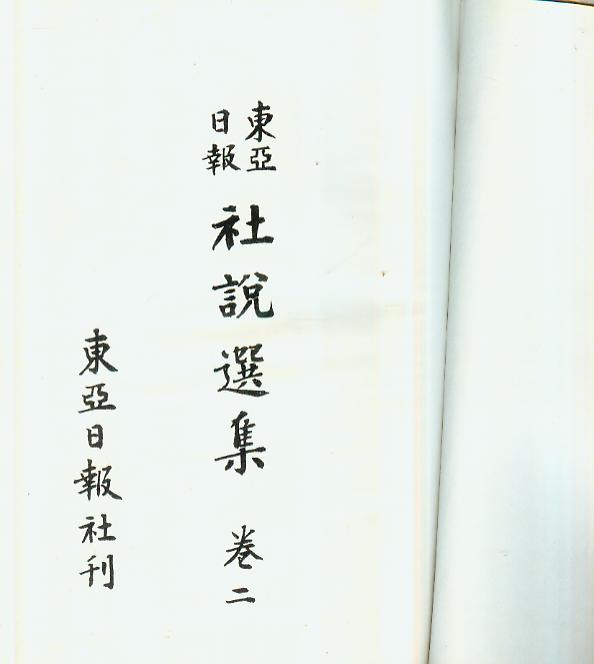 東亞
日報
社說選集 卷二
東亞日報社刊